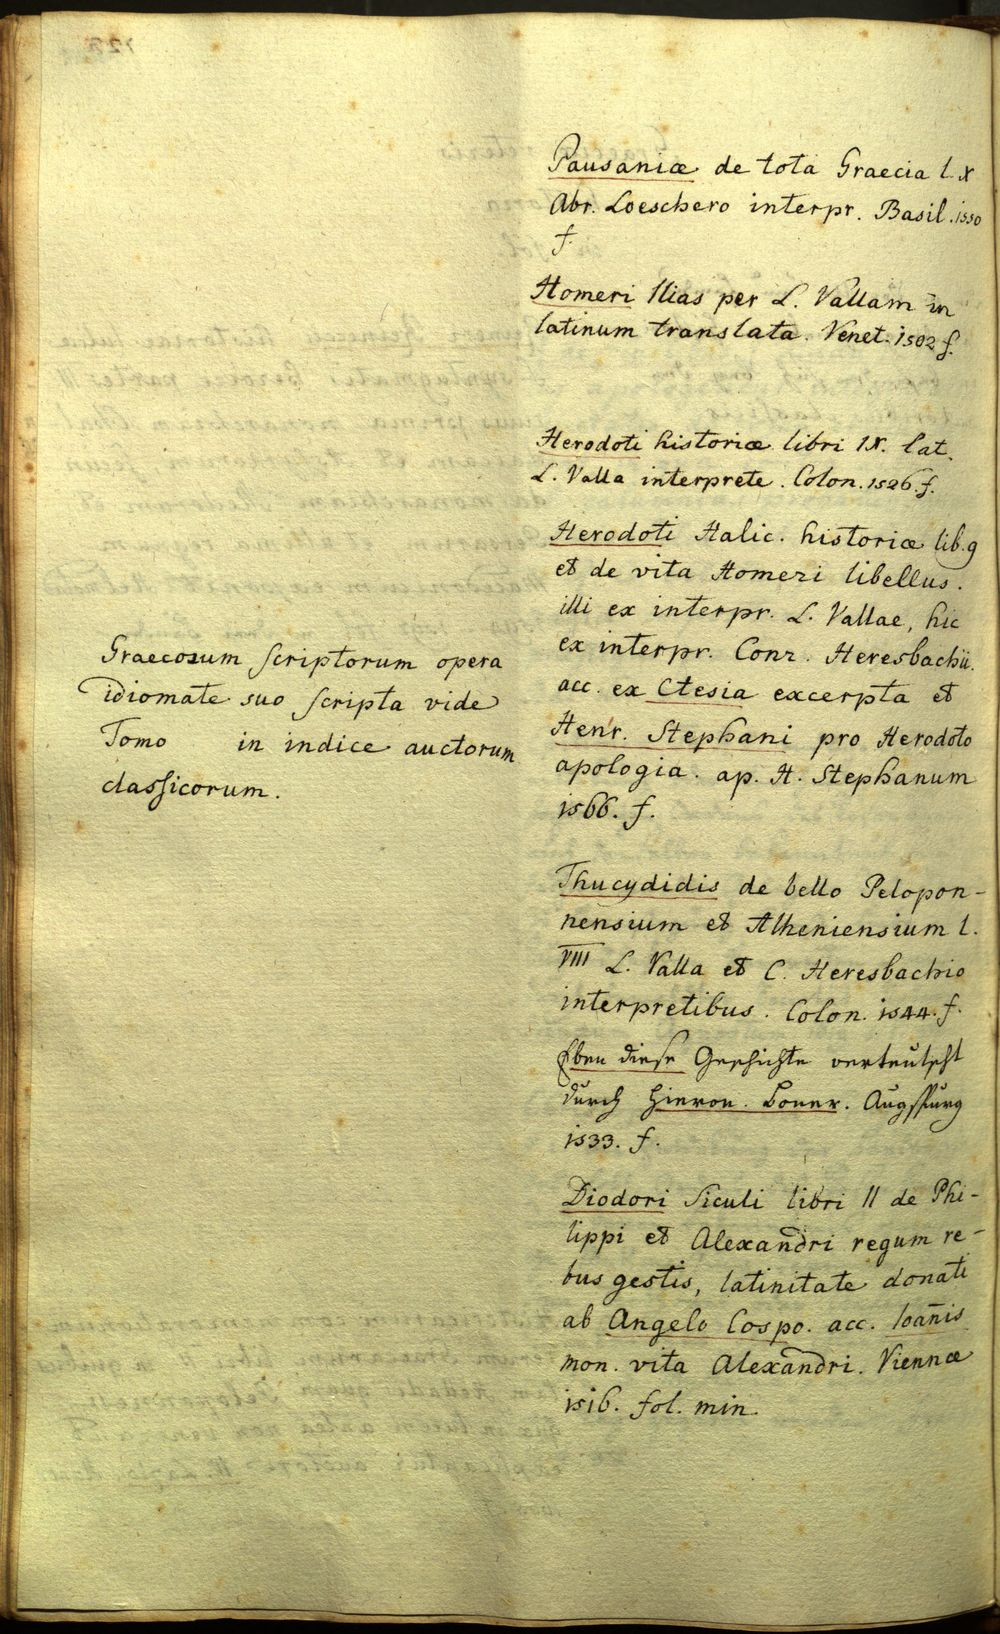 Graecorum scriptorum opera
idiomate suo scripta vide
Tomo in indice auctorum
classicorum.
Pausaniæ de tota Graecia l. X
Abr. Loeschero interpr. Basil. 1550
f.
Homeri Ilias per L. Vallam in
latinum translata. Venet. 1502 f.
Herodoti historiæ libri IX. lat.
L. Valla interprete. Colon. 1526. f.
Herodoti Halic. historiæ lib. 9
et de vita Homeri libellus.
illi ex interpr. L. Vallae, hic
ex interpr. Conr. Heresbachii.
acc. ex Ctesia excerpta et
Henr. Stephani pro Herodoto
apologia. ap. H. Stephanum
1566. f.
Thucydidis de bello Pelopon-
nensium et Atheniensium l.
VIII L. Valla et C. Heresbachio
interpretibus. Colon. 1544. f.
Eben diese Geschichte verteutscht
durch Hieron. Boner. Augspurg
1533. f.
Diodori Siculi libri II de Phi-
lippi et Alexandri regum re-
bus gestis, latinitate donati
ab Angelo Cospo. acc. Ioan̄is
mon. vita Alexandri. Viennæ
1516. fol. min.